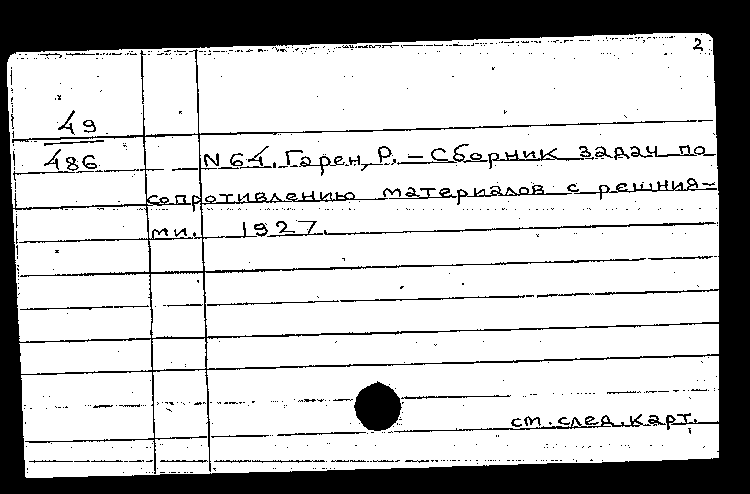 2
49
486
N 64. Гарен, Р. – Сборник задач по
сопротивлению материалов с решния-
ми. 1927.
см. след. карт.